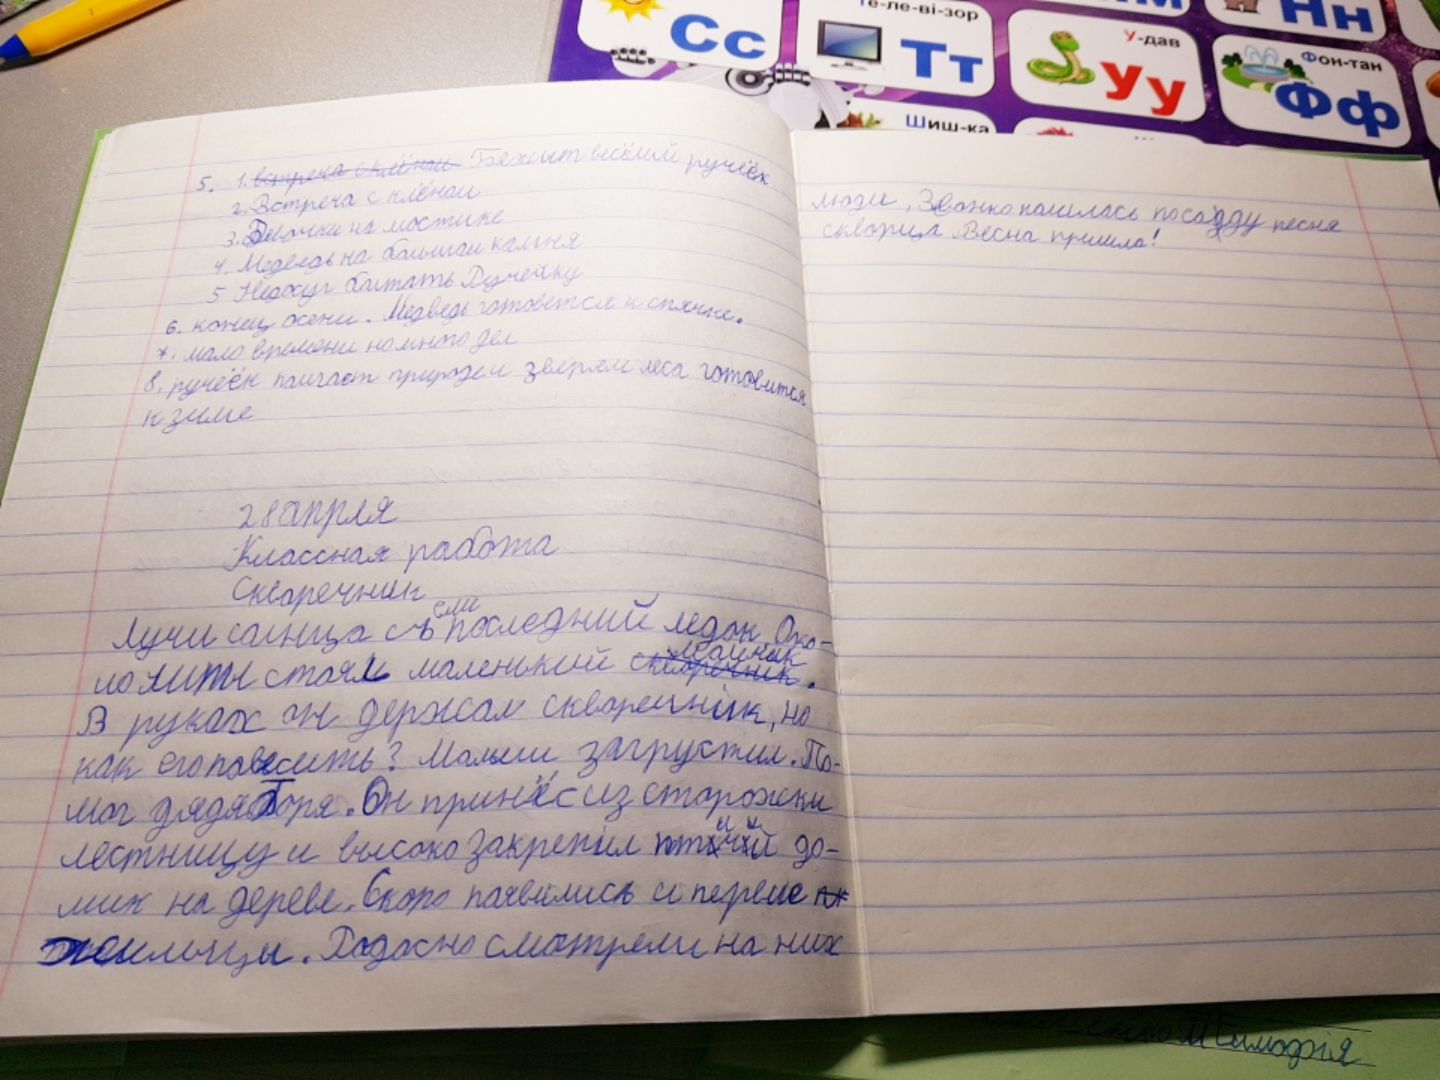 Сс
Те-ле-ві-зор
Тт
У-дав
Уу
Нн
Фон-тан
Фф
Шиш-ка
5. 1. встреча с клёном Бежыт весёлий ручёёк
2. Встреча с клёном
3. Девочки на мостике
4. Медведь на большом камня
5 Недосуг болтать Ручейку
6. конец осени. Медведь готовется к спячке.
7. мало времени но много дел
8. ручеёк помгает природе и зверям леса готовится
к зиме
28 апрля
Классная работа
Скворечник
Лучи солнца съели последний ледок. Око-
ло липы стоял маленький скворечник мальчик.
В руках он держал скворечник, но
как его повесить? Малыш загрустил. По-
мог дядя Боря. Он принёс из сторожки
лестницу и высоко закрепил птичий до-
мик на дереве. Скоро появились и первые
жильцы. Радосно смотрели на них
люди, Звонко полилась по саду песня
скворца Весна пришла!